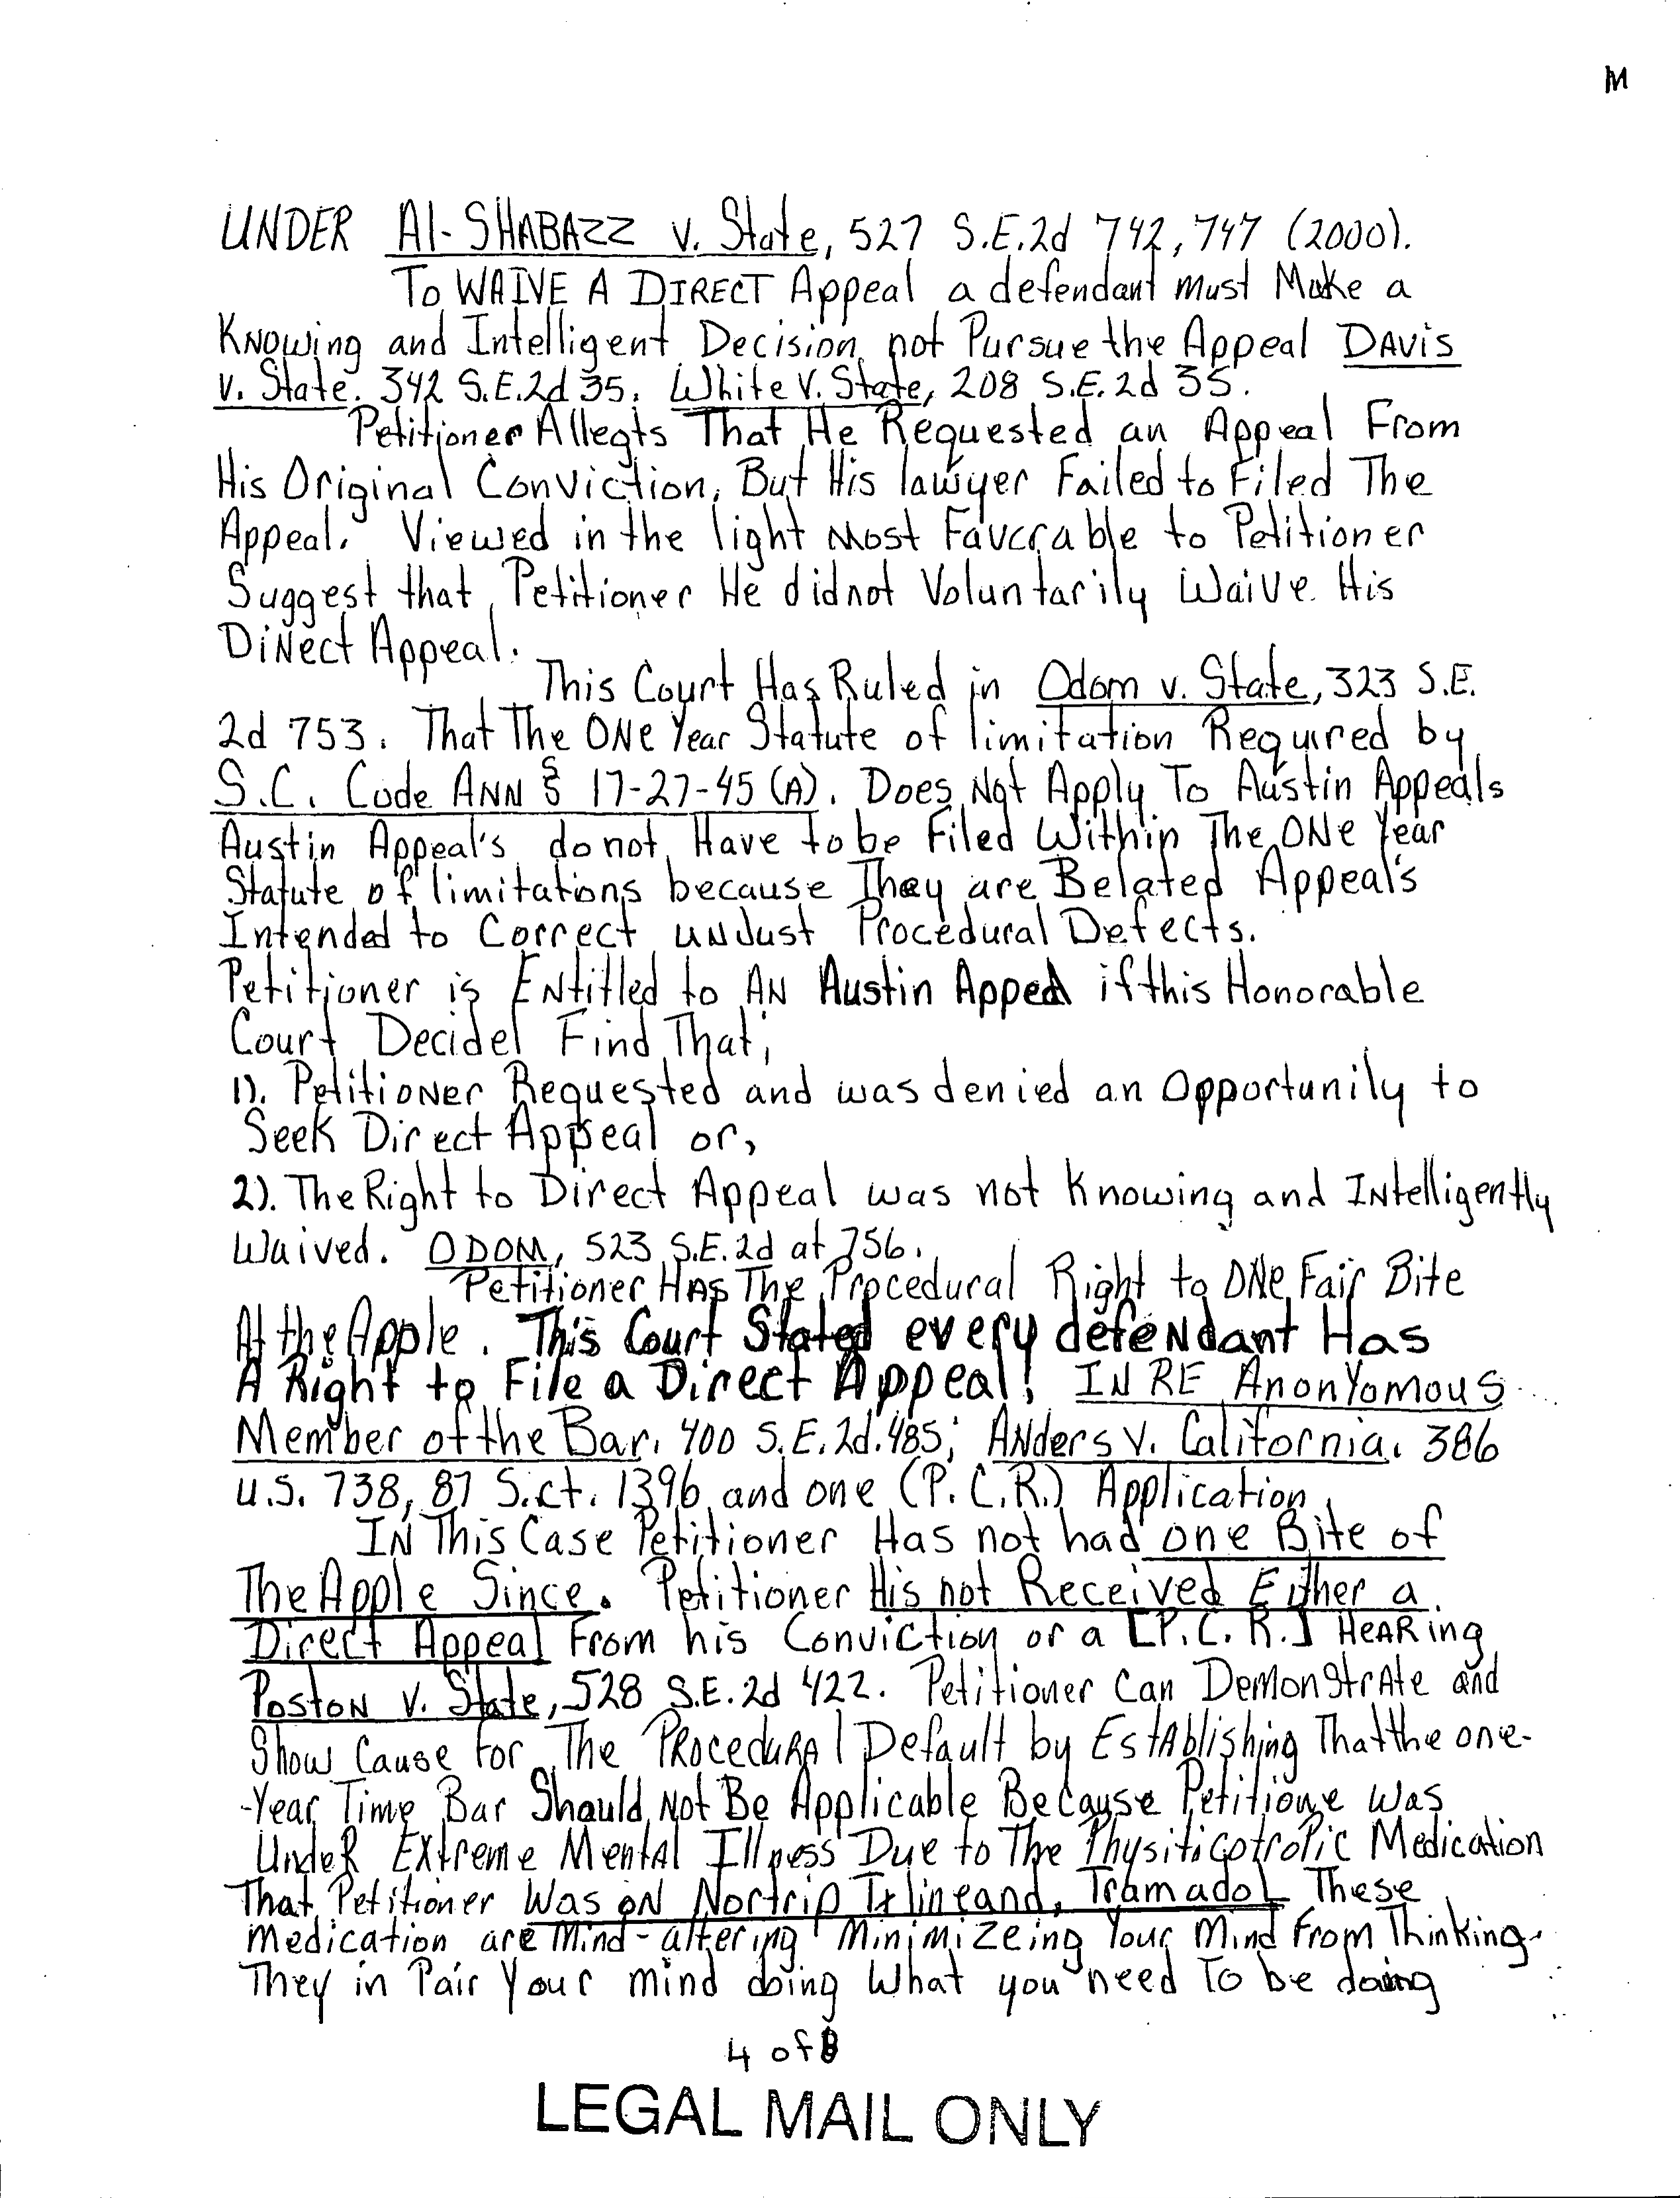 M
UNDER Al-SHABAZZ v. State, 527 S.E.2d 742, 747 (2000).
To WAIVE A DIRECT Appeal a defendant must Make a
Knowing and Intelligent Decision not Pursue the Appeal DAVIS
v. State. 342 S.E.2d 35. White v. State, 208 S.E.2d 35.
Petitioner Allegts That He Requested an Appeal From
His Original Conviction, But His lawyer Failed to Filed The
Appeal. Viewed in the light Most Favorable to Petitioner
Suggest that Petitioner He didnot Voluntarily Waive His
DiRect Appeal.
This Court Has Ruled in Odom v. State, 323 S.E.
2d 753. That The ONe Year Statute of limitation Required by
S.C. Code ANN § 17-27-45 (A). Does Not Apply To Austin Appeals
Austin Appeal's do not Have to be Filed Within The ONe Year
Statute of limitations because They are Belated Appeal's
Intended to Correct unJust Procedural Defects.
Petitioner is ENtitled to AN Austin Appeal if this Honorable
Court Decidel Find That;
1). PetitioNer Requested and was denied an Opportunily to
Seek Direct Appeal or,
2). The Right to Direct Appeal was not Knowing and INtelligently
Waived. ODOM, 523 S.E.2d at 756.
Petitioner HAs The Procedural Right to ONe Fair Bite
At the Apple. This Court Stated every defeNdant Has
A Right to File a Direct Appeal! IN RE AnonYomous
Member of the Bar. 400 S.E.2d.485; ANders v. California. 386
U.S. 738, 87 S.ct. 1396 and one (P.C.R.) Application.
IN This Case Petitioner Has not had one Bite of
The Apple Since. Petitioner His not Received Either a
Direct Appeal From his Conviction or a [P.C.R.] HeARing
PostoN v. State, 528 S.E.2d 422. Petitioner Can DemonStrAte and
Show Cause for The PRoceduRAl Default by EstAblishing That the one-
-Year Time Bar Should Not Be Applicable Because Petitione was
UndeR Extreme MentAl Illness Due to The Physiticotropic Medication
That Petitioner Was oN Nortrip Txlineand, TramadoL These
medication are Mind-altering Minimizeing Your Mind From Thinking.
They in Pair Your mind doing What you need To be doing
4 of 8
LEGAL MAIL ONLY